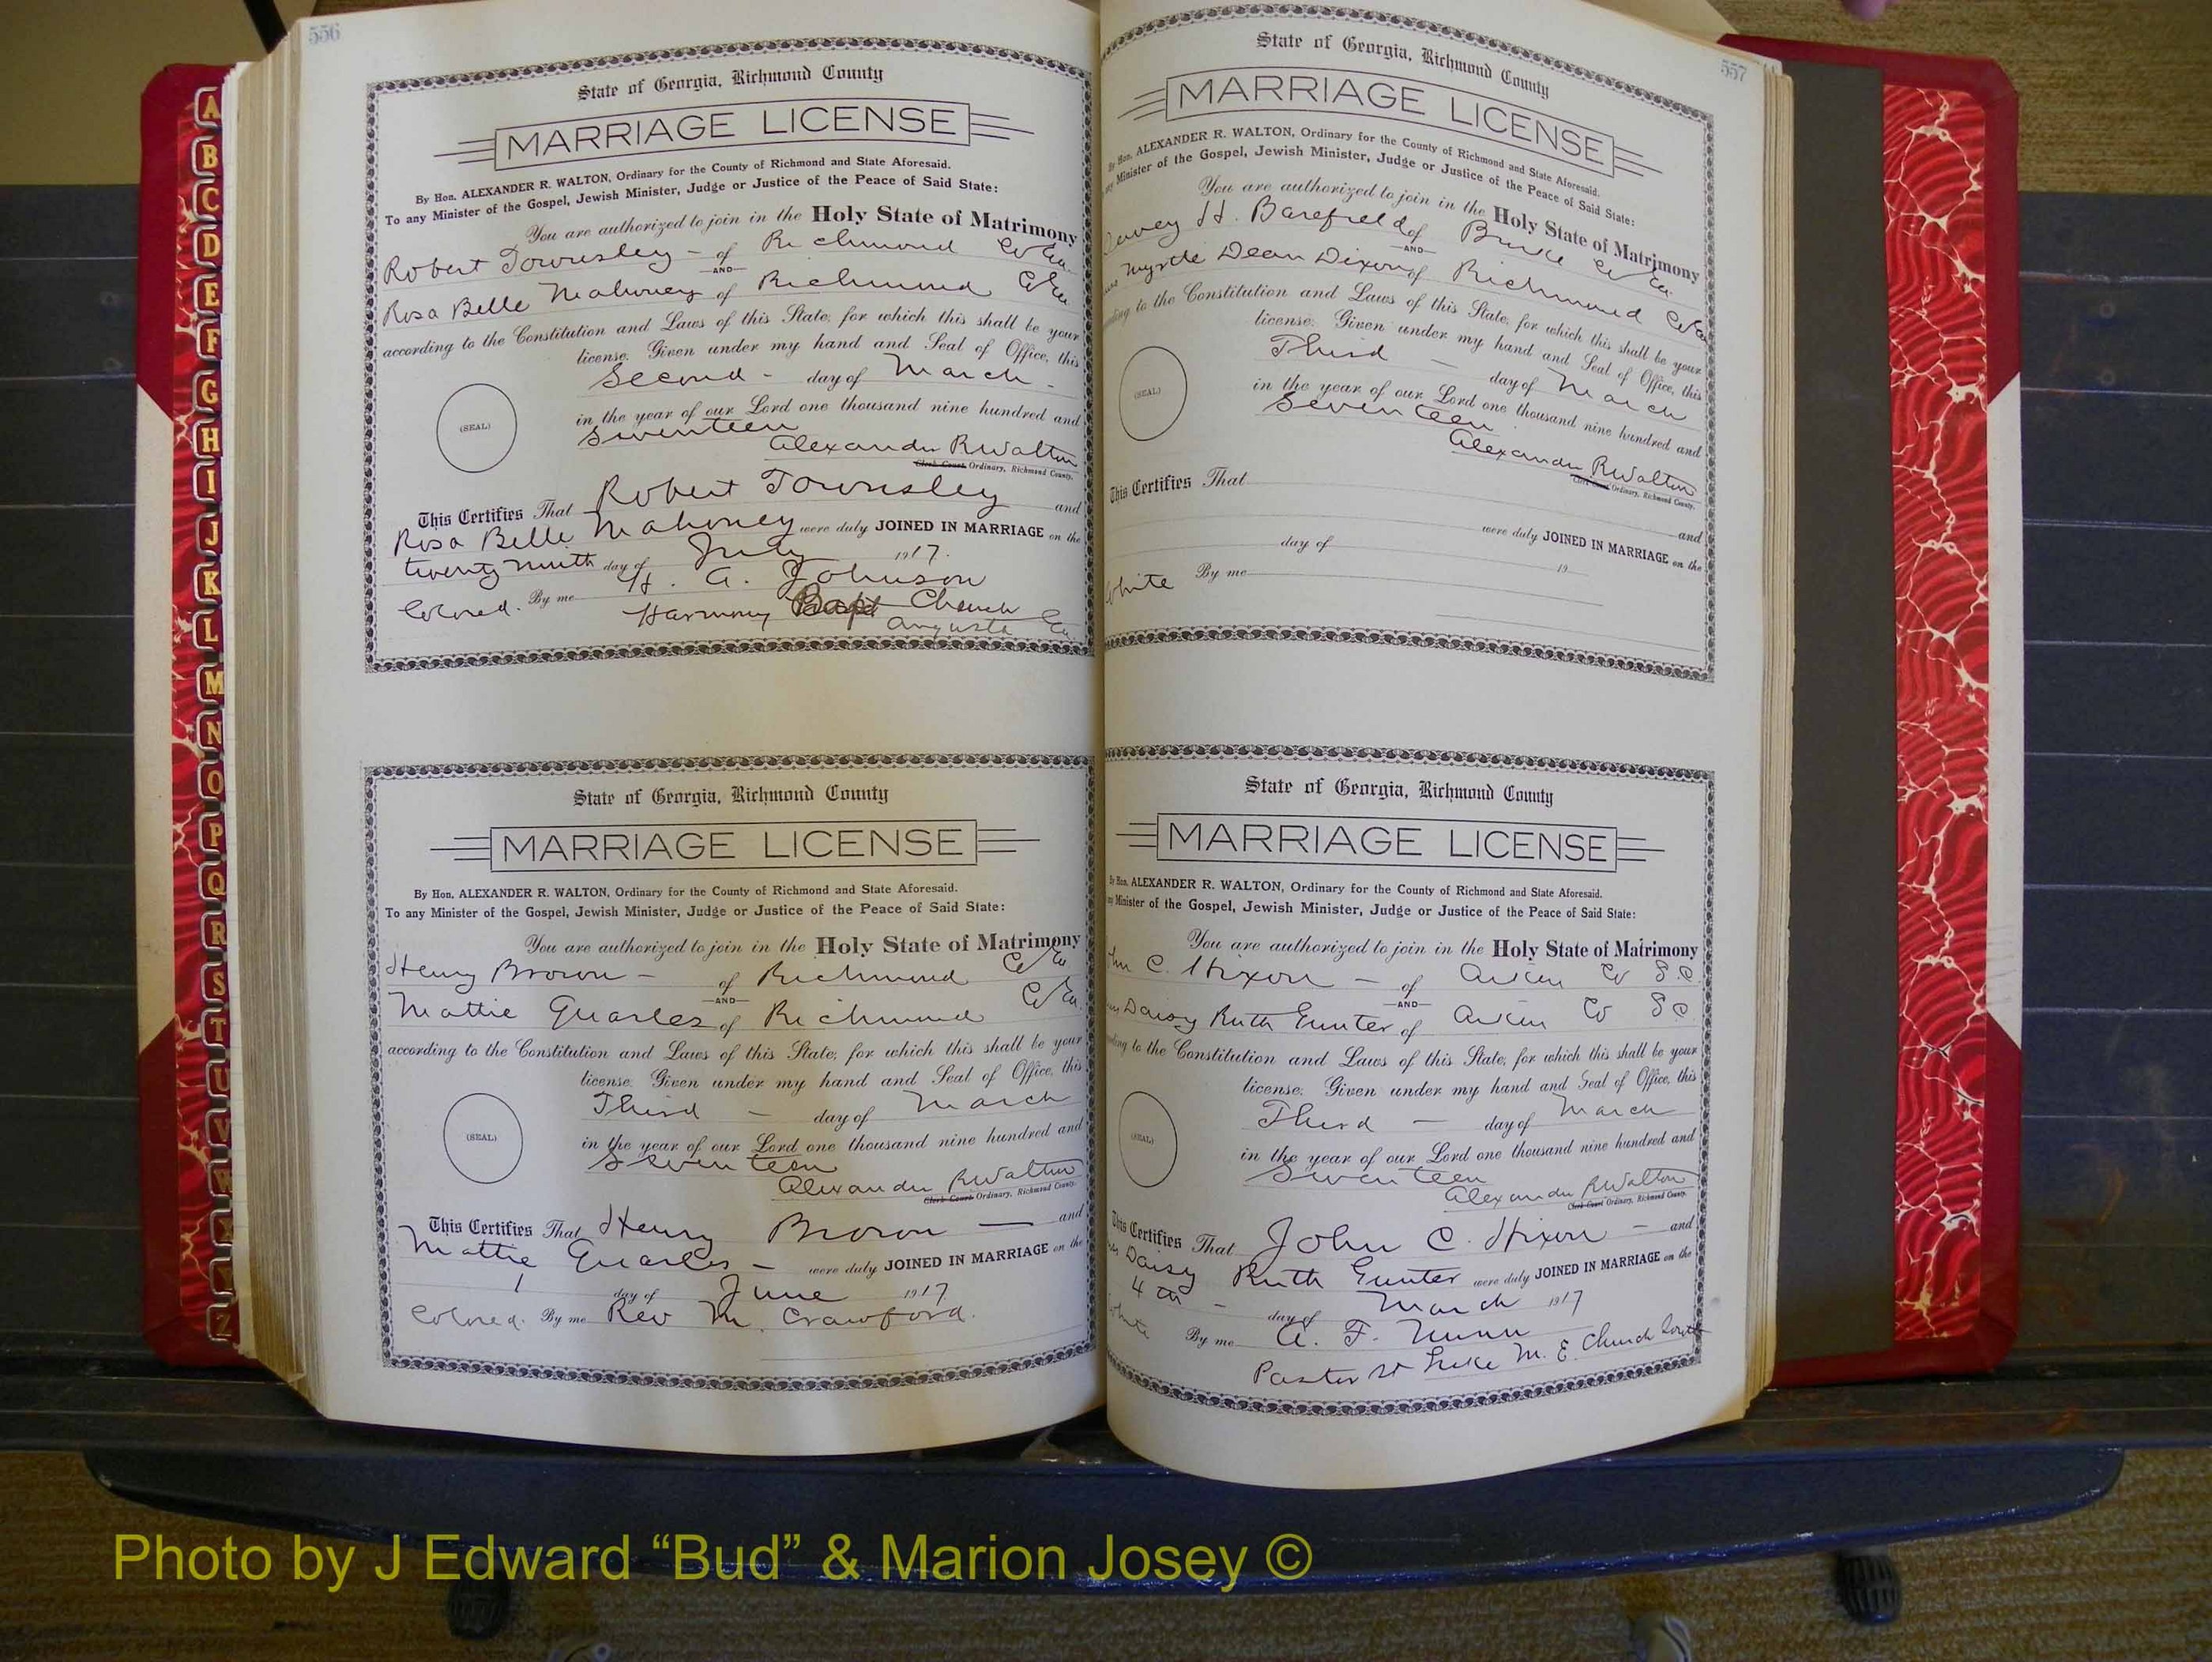 556
State of Georgia, Richmond County
MARRIAGE LICENSE
By Hon. ALEXANDER R. WALTON, Ordinary for the County of Richmond and State Aforesaid.
To any Minister of the Gospel, Jewish Minister, Judge or Justice of the Peace of Said State:
You are authorized to join in the Holy State of Matrimony
Robert Townsley - of Richmond Co Ga.
AND
Rosa Belle Mahoney of Richmond Co Ga
according to the Constitution and Laws of this State, for which this shall be your
license. Given under my hand and Seal of Office, this
Second - day of March -
(SEAL)
in the year of our Lord one thousand nine hundred and
Seventeen
Alexander R Walton
Clerk Court Ordinary, Richmond County.
This Certifies That Robert Townsley and
Rosa Belle Mahoney were duly JOINED IN MARRIAGE on the
twenty ninth day of July 1917.
Colored. By me H. A. Johnson
Harmony Bapt Church
Augusta Ga
State of Georgia, Richmond County
MARRIAGE LICENSE
By Hon. ALEXANDER R. WALTON, Ordinary for the County of Richmond and State Aforesaid.
To any Minister of the Gospel, Jewish Minister, Judge or Justice of the Peace of Said State:
You are authorized to join in the Holy State of Matrimony
Henry Brown - of Richmond Co Ga
AND
Mattie Quarles of Richmond Co Ga.
according to the Constitution and Laws of this State, for which this shall be your
license. Given under my hand and Seal of Office, this
Third - day of March
(SEAL)
in the year of our Lord one thousand nine hundred and
Seventeen
Alexander R Walton
Clerk Court Ordinary, Richmond County.
This Certifies That Henry Brown — and
Mattie Quarles - were duly JOINED IN MARRIAGE on the
1 day of June 1917
Colored. By me Rev M. Crawford.
557
State of Georgia, Richmond County
MARRIAGE LICENSE
By Hon. ALEXANDER R. WALTON, Ordinary for the County of Richmond and State Aforesaid.
ny Minister of the Gospel, Jewish Minister, Judge or Justice of the Peace of Said State:
You are authorized to join in the Holy State of Matrimony
Dewey H. Barefield of Burke Co Ga
AND
Myrtle Dean Dixon of Richmond Co Ga
ding to the Constitution and Laws of this State, for which this shall be your
license. Given under my hand and Seal of Office, this
Third - day of March
(SEAL)
in the year of our Lord one thousand nine hundred and
Seventeen
Alexander R Walton
Clerk Court Ordinary, Richmond County.
This Certifies That
and
were duly JOINED IN MARRIAGE on the
day of 19
White By me
State of Georgia, Richmond County
MARRIAGE LICENSE
By Hon. ALEXANDER R. WALTON, Ordinary for the County of Richmond and State Aforesaid.
ny Minister of the Gospel, Jewish Minister, Judge or Justice of the Peace of Said State:
You are authorized to join in the Holy State of Matrimony
hn C. Hixon - of Aiken Co S.C.
AND
Daisy Ruth Gunter of Aiken Co S C
ding to the Constitution and Laws of this State, for which this shall be your
license. Given under my hand and Seal of Office, this
Third - day of March
(SEAL)
in the year of our Lord one thousand nine hundred and
Seventeen
Alexander R Walton
Clerk Court Ordinary, Richmond County.
This Certifies That John C. Hixon - and
Daisy Ruth Gunter were duly JOINED IN MARRIAGE on the
4th - day of March 1917
White By me A. F. Nunn
Pastor St Luke M. E. Church South
A
B
C
D
E
F
G
H
I
J
K
L
M
N
O
P
Q
R
S
T
U
V
W
X
Z
Photo by J Edward “Bud” & Marion Josey ©